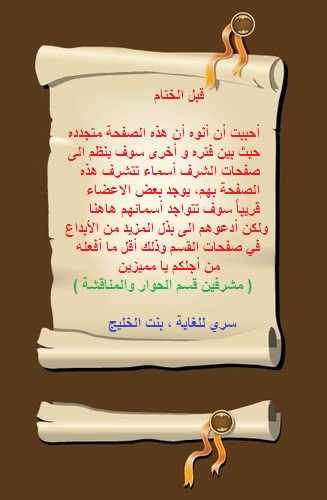 قبل الختام
أحببت أن أنوه أن هذه الصفحة متجدده
حيث بين فتره و أخرى سوف ينظم الى
صفحات الشرف أسماء تتشرف هذه
الصفحة بهم، يوجد بعض الاعضاء
قريباً سوف تتواجد أسمائهم هاهنا
ولكن أدعوهم الى بذل المزيد من الأبداع
في صفحات القسم وذلك أقل ما أفعله
من أجلكم يا مميزين
( مشرفين قسم الحوار والمناقشة )
سري للغاية ، بنت الخليج